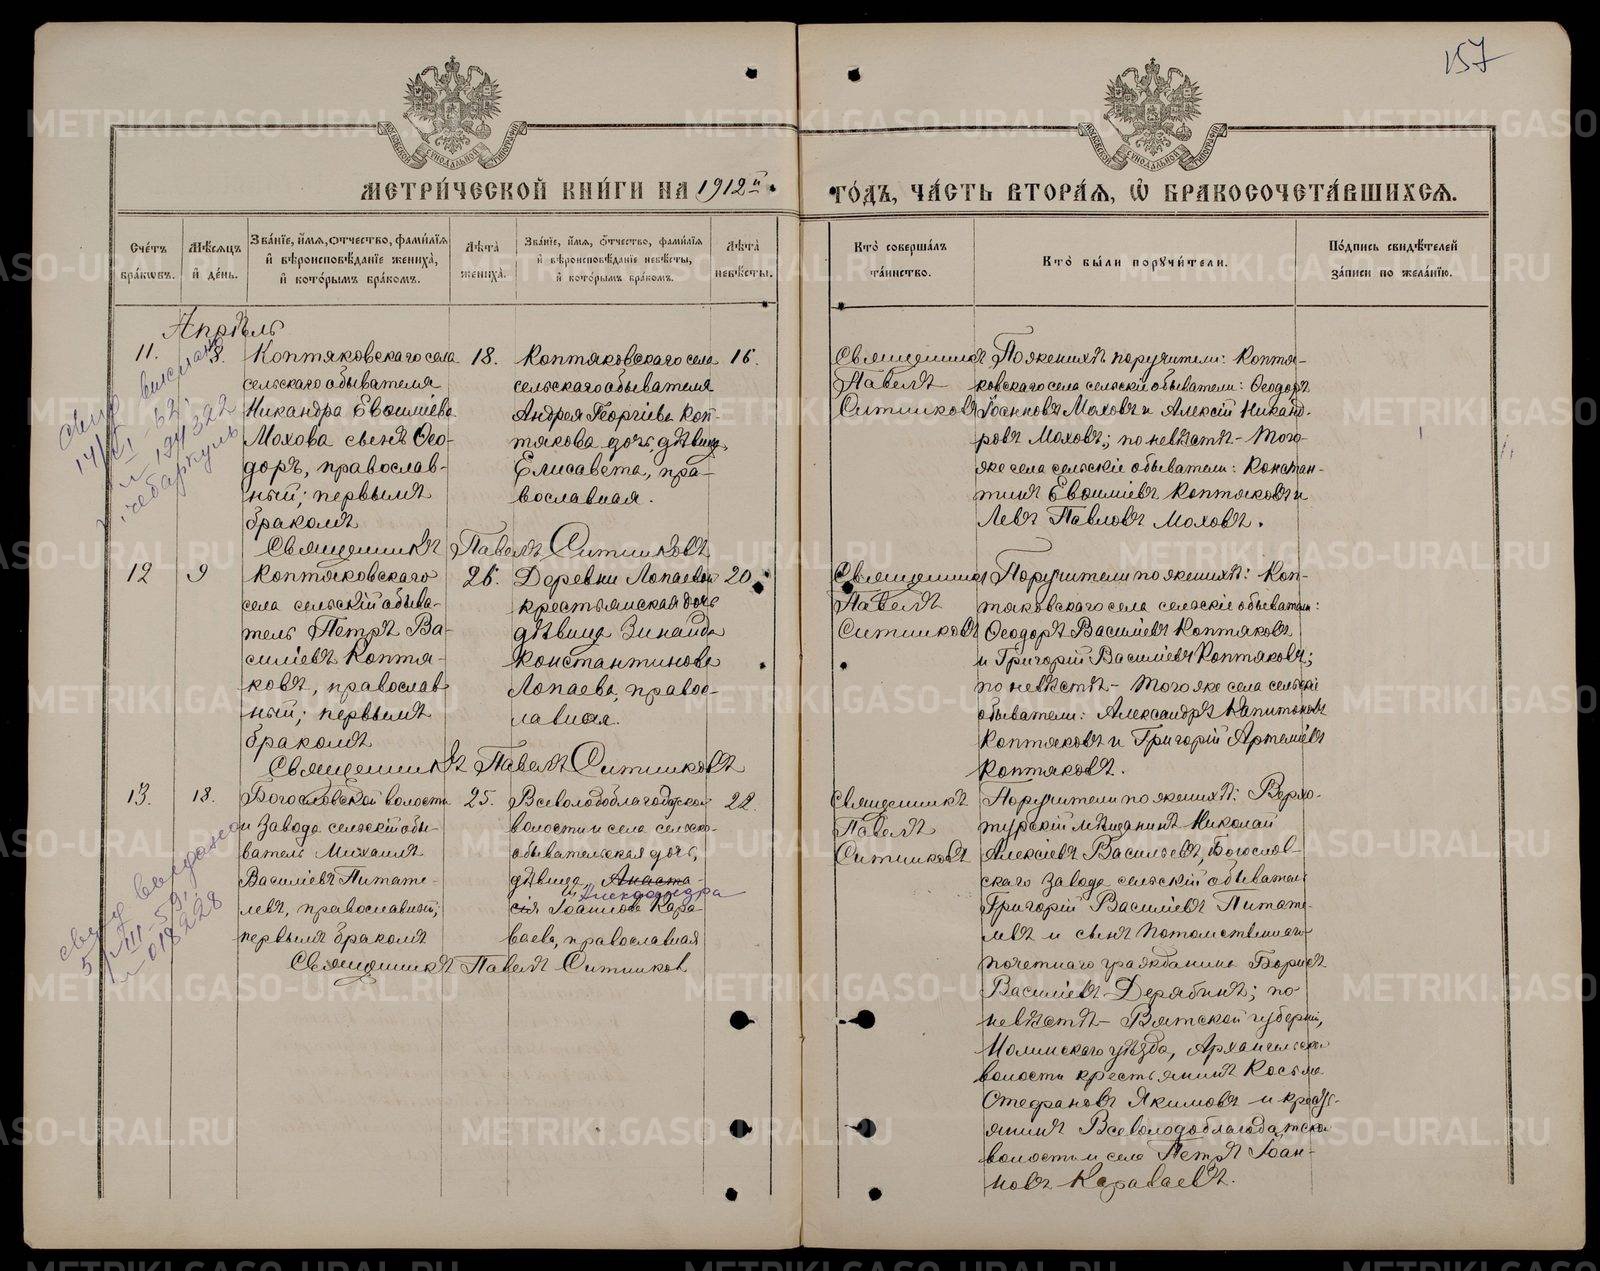 157
МЕТРИ́ЧЕСКОЙ КНИ́ГИ НА 1912й
ГО́ДЪ, ЧА́СТЬ ВТОРА́Я, Ѽ БРАКОСОЧЕТА́ВШИХСЯ.
Сче́тъ бра́кѡвъ.
Мѣ́сяцъ и҆ де́нь.
Зва́нїе, и҆́мя, ѻ҆́тчество, фами́лїя и҆ вѣроисповѣ́данїе жениха̀, и҆ кото́рымъ бра́комъ.
Лѣ́та̀ жениха̀.
Зва́нїе, и҆́мя, ѻ҆́тчество, фами́лїя и҆ вѣроисповѣ́данїе невѣ́сты, и҆ кото́рымъ бра́комъ.
Лѣ́та̀ невѣ́сты.
Кто̀ соверша́лъ та́инство.
Кто̀ бы́ли порꙋчи́тели.
По́дпись свидѣ́телей за́писи по жела́нїю.
Апрѣль
11.
8.
Коптяковскаго села
сельскаго обывателя
Никандра Евѳиміева
Мохова сынъ Ѳео-
доръ, православ-
ный; первымъ
бракомъ
18.
Коптяковскаго села
сельскаго обывателя
Андрея Георгіева Коп-
тякова дочь, дѣвица
Елисавета, пра-
вославная.
16.
Священникъ
Павелъ
Ситниковъ
По женихѣ поручители: Коптя-
ковскаго села сельскіе обыватели: Ѳеодоръ
Іоанновъ Моховъ и Алексій Никанд-
ровъ Моховъ; по невѣстѣ - Того-
же села сельскіе обыватели: Констан-
тинъ Евѳиміевъ Коптяковъ и
Левъ Павловъ Моховъ.
Священникъ Павелъ Ситниковъ
12
9
Коптяковскаго
села сельскій обыва-
тель Петръ Ва-
силіевъ Коптя-
ковъ, православ
ный; первымъ
бракомъ
26.
Деревни Лопаевой
крестьянская дочь
дѣвица Зинаида
Константинова
Лопаева, правос-
лавная.
20
Священникъ
Павелъ
Ситниковъ
Поручители по женихѣ: Коп-
тяковскаго села сельскіе обыватели:
Ѳеодоръ Василіевъ Коптяковъ
и Григорій Василіевъ Коптяковъ;
по невѣстѣ - Того же села сельскіе
обыватели: Александръ Капитоновъ
Коптяковъ и Григорій Артеміевъ
Коптяковъ.
Священникъ Павелъ Ситниковъ
13.
18.
Богословской волости
и Завода сельскій обы-
ватель Михаилъ
Василіевъ Питате-
левъ, православный;
первымъ бракомъ
25.
Всеволодоблагодатской
волости и села сельско-
обывательская дочь,
дѣвица Анаста-
сія Александра
Іоаннова Кара-
ваева, православная
22.
Священникъ
Павелъ
Ситниковъ
Поручители по женихѣ: Верхо-
турскій мѣщанинъ Николай
Алексіевъ Васильевъ, Богослов-
скаго Завода сельскій обыватель
Григорій Василіевъ Питате-
левъ и сынъ потомственнаго
почетнаго гражданина Борисъ
Василіевъ Дерябинъ; по
невѣстѣ - Вятской губерніи,
Нолинскаго уѣзда, Архангельской
волости крестьянинъ Косьма
Стефановъ Якимовъ и кресть-
янинъ Всеволодоблагодатской
волости и села Петръ Іоан-
новъ Караваевъ.
Священникъ Павелъ Ситников
свид выслано
14/VI - 62.
194322
Чебаркуль
св-у выдано
5/VIII - 59г.
018228
МОСКОВСКОЙ СУНОДАЛЬНОЙ ТИПОГРАФІИ
МОСКОВСКОЙ СУНОДАЛЬНОЙ ТИПОГРАФІИ
METRIKI.GASO-URAL.RU